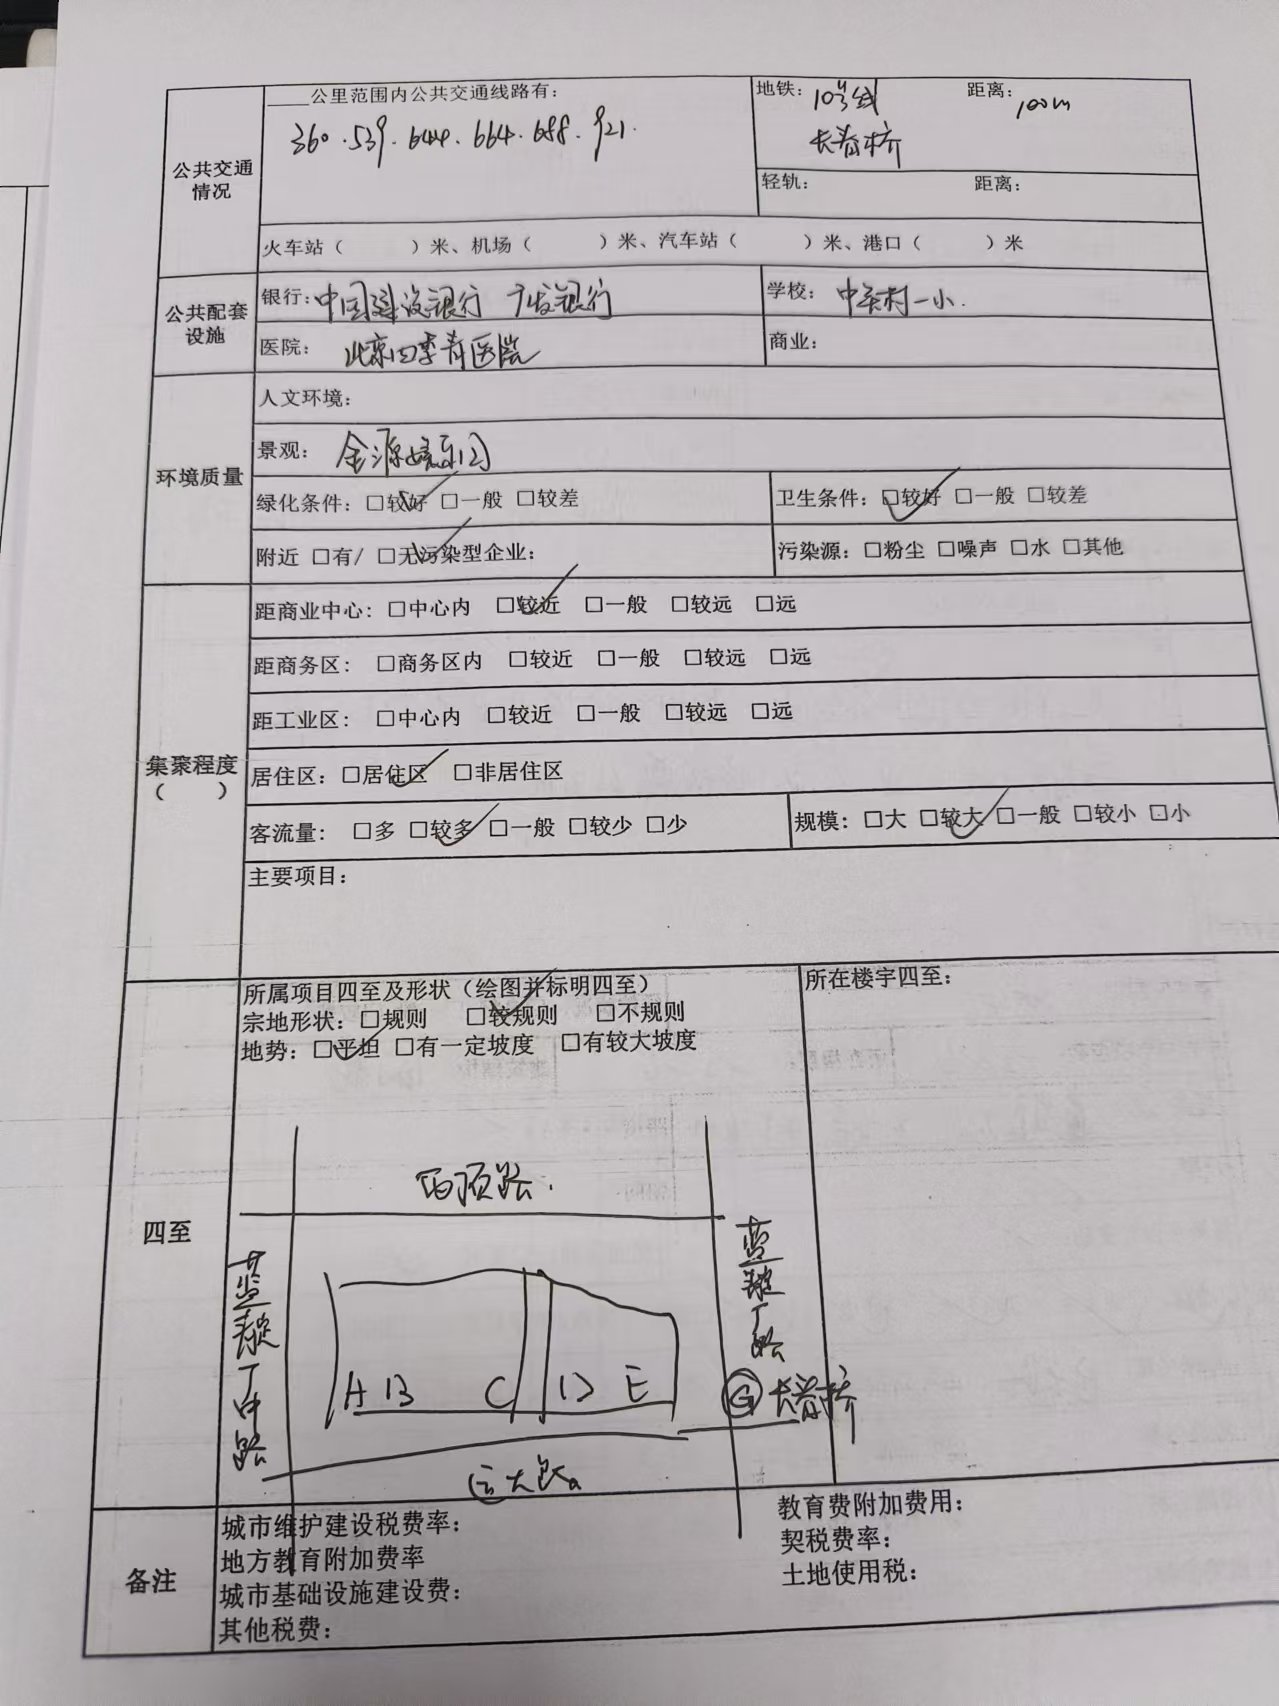 ____公里范围内公共交通线路有： 地铁：10号线 距离：100m
360.539.644.664.688.921. 长春桥
公共交通情况
轻轨： 距离：
火车站（ ）米、机场（ ）米、汽车站（ ）米、港口（ ）米
公共配套设施
银行：中国建设银行 广发银行 学校：中关村一小.
医院：北京四季青医院 商业：
环境质量
人文环境：
景观：金源娱乐园
绿化条件：☑较好 □一般 □较差 卫生条件：☑较好 □一般 □较差
附近 □有/ ☑无污染型企业： 污染源：□粉尘 □噪声 □水 □其他
集聚程度（ ）
距商业中心：□中心内 ☑较近 □一般 □较远 □远
距商务区： □商务区内 □较近 □一般 □较远 □远
距工业区： □中心内 □较近 □一般 □较远 □远
居住区：☑居住区 □非居住区
客流量： □多 ☑较多 □一般 □较少 □少 规模：□大 ☑较大 □一般 □较小 □小
主要项目：
四至
所属项目四至及形状（绘图并标明四至） 所在楼宇四至：
宗地形状：□规则 ☑较规则 □不规则
地势：☑平坦 □有一定坡度 □有较大坡度
西顶路.
蓝靛厂中路
蓝靛厂路
A B C D E
G 长春桥
远大路
备注
城市维护建设税费率： 教育费附加费用：
地方教育附加费率 契税费率：
城市基础设施建设费： 土地使用税：
其他税费：